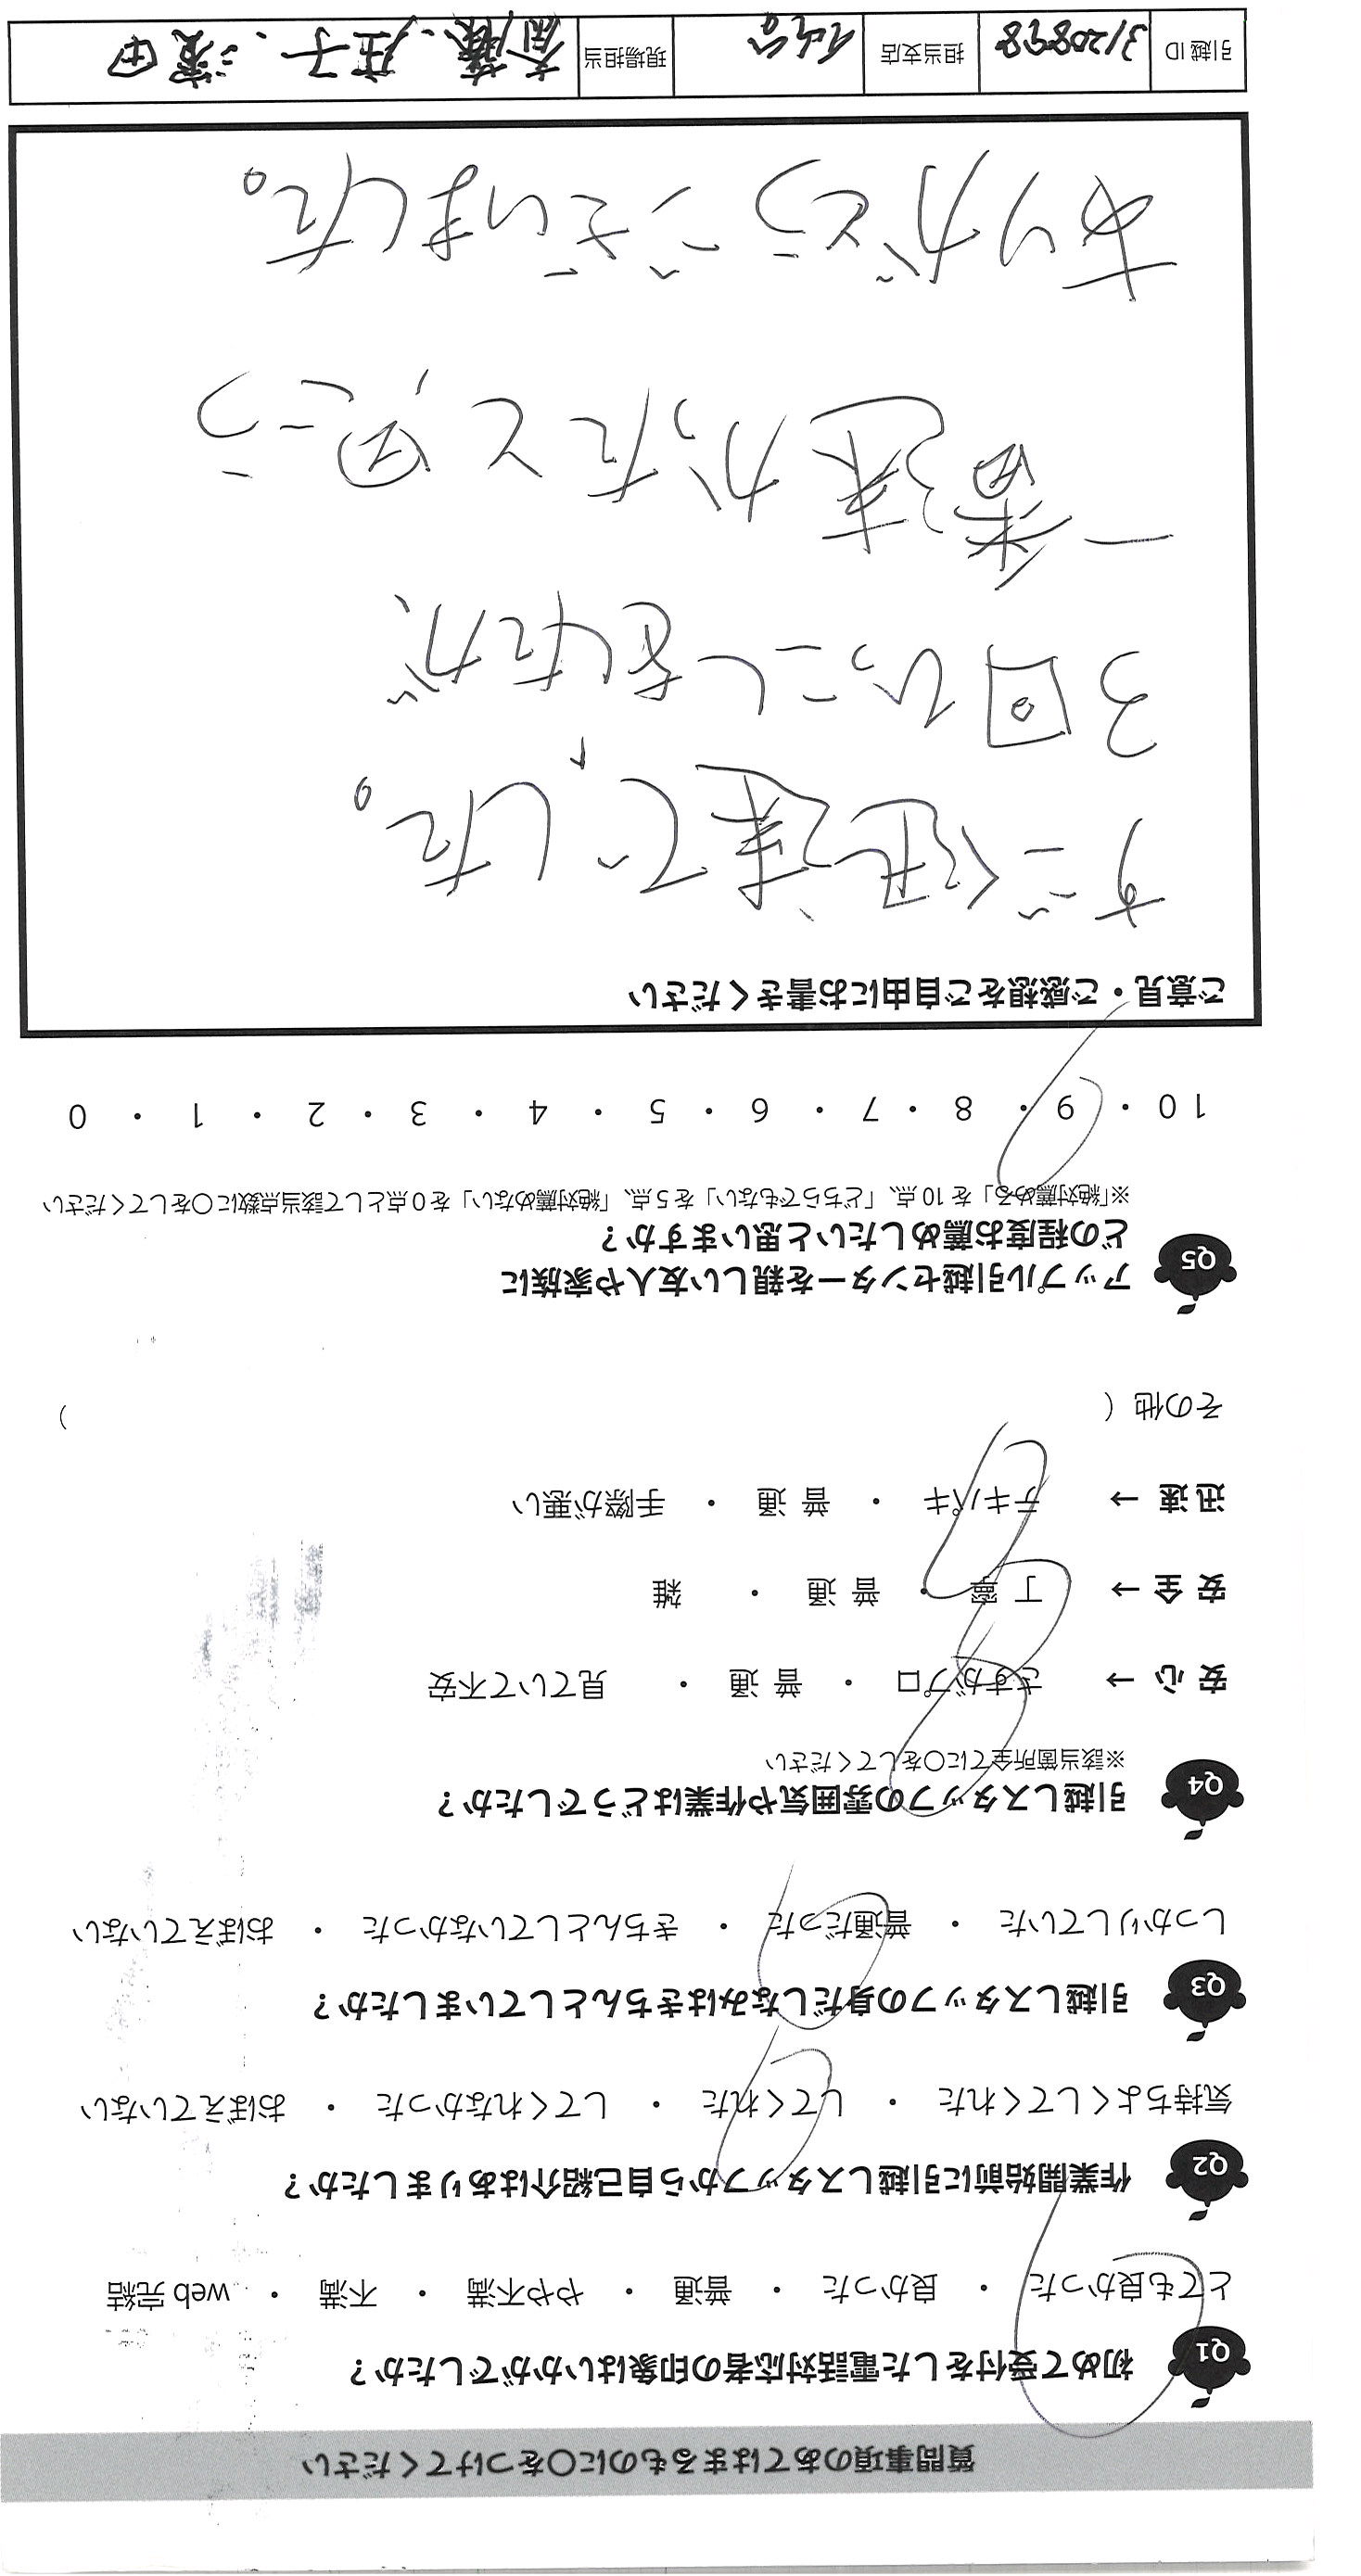 質問事項のあてはまるものに〇をつけてください
Q1 初めて受付をした電話対応者の印象はいかがでしたか？
とても良かった ・ 良かった ・ 普通 ・ やや不満 ・ 不満 ・ web 完結
Q2 作業開始前に引越しスタッフから自己紹介はありましたか？
気持ちよくしてくれた ・ してくれた ・ してくれなかった ・ おぼえていない
Q3 引越しスタッフの身だしなみはきちんとしていましたか？
しっかりしていた ・ 普通だった ・ きちんとしていなかった ・ おぼえていない
Q4 引越しスタッフの雰囲気や作業はどうでしたか？
※該当箇所全てに〇をしてください
安心 → さすがプロ ・ 普通 ・ 見ていて不安
安全 → 丁寧 ・ 普通 ・ 雑
迅速 → テキパキ ・ 普通 ・ 手際が悪い
その他（ ）
Q5 アップル引越センターを親しい友人や家族に
どの程度お薦めしたいと思いますか？
※「絶対薦める」を 10 点、「どちらでもない」を 5 点、「絶対薦めない」を 0 点として該当点数に〇をしてください
10 ・ 9 ・ 8 ・ 7 ・ 6 ・ 5 ・ 4 ・ 3 ・ 2 ・ 1 ・ 0
ご意見・ご感想をご自由にお書きください
すごく迅速でした。
3回ひっこしをしたが、
一番速かったと思う
ありがとうございました。
引越 ID 3120898 担当支店 仙台 現場担当 斎藤、庄子、濱田